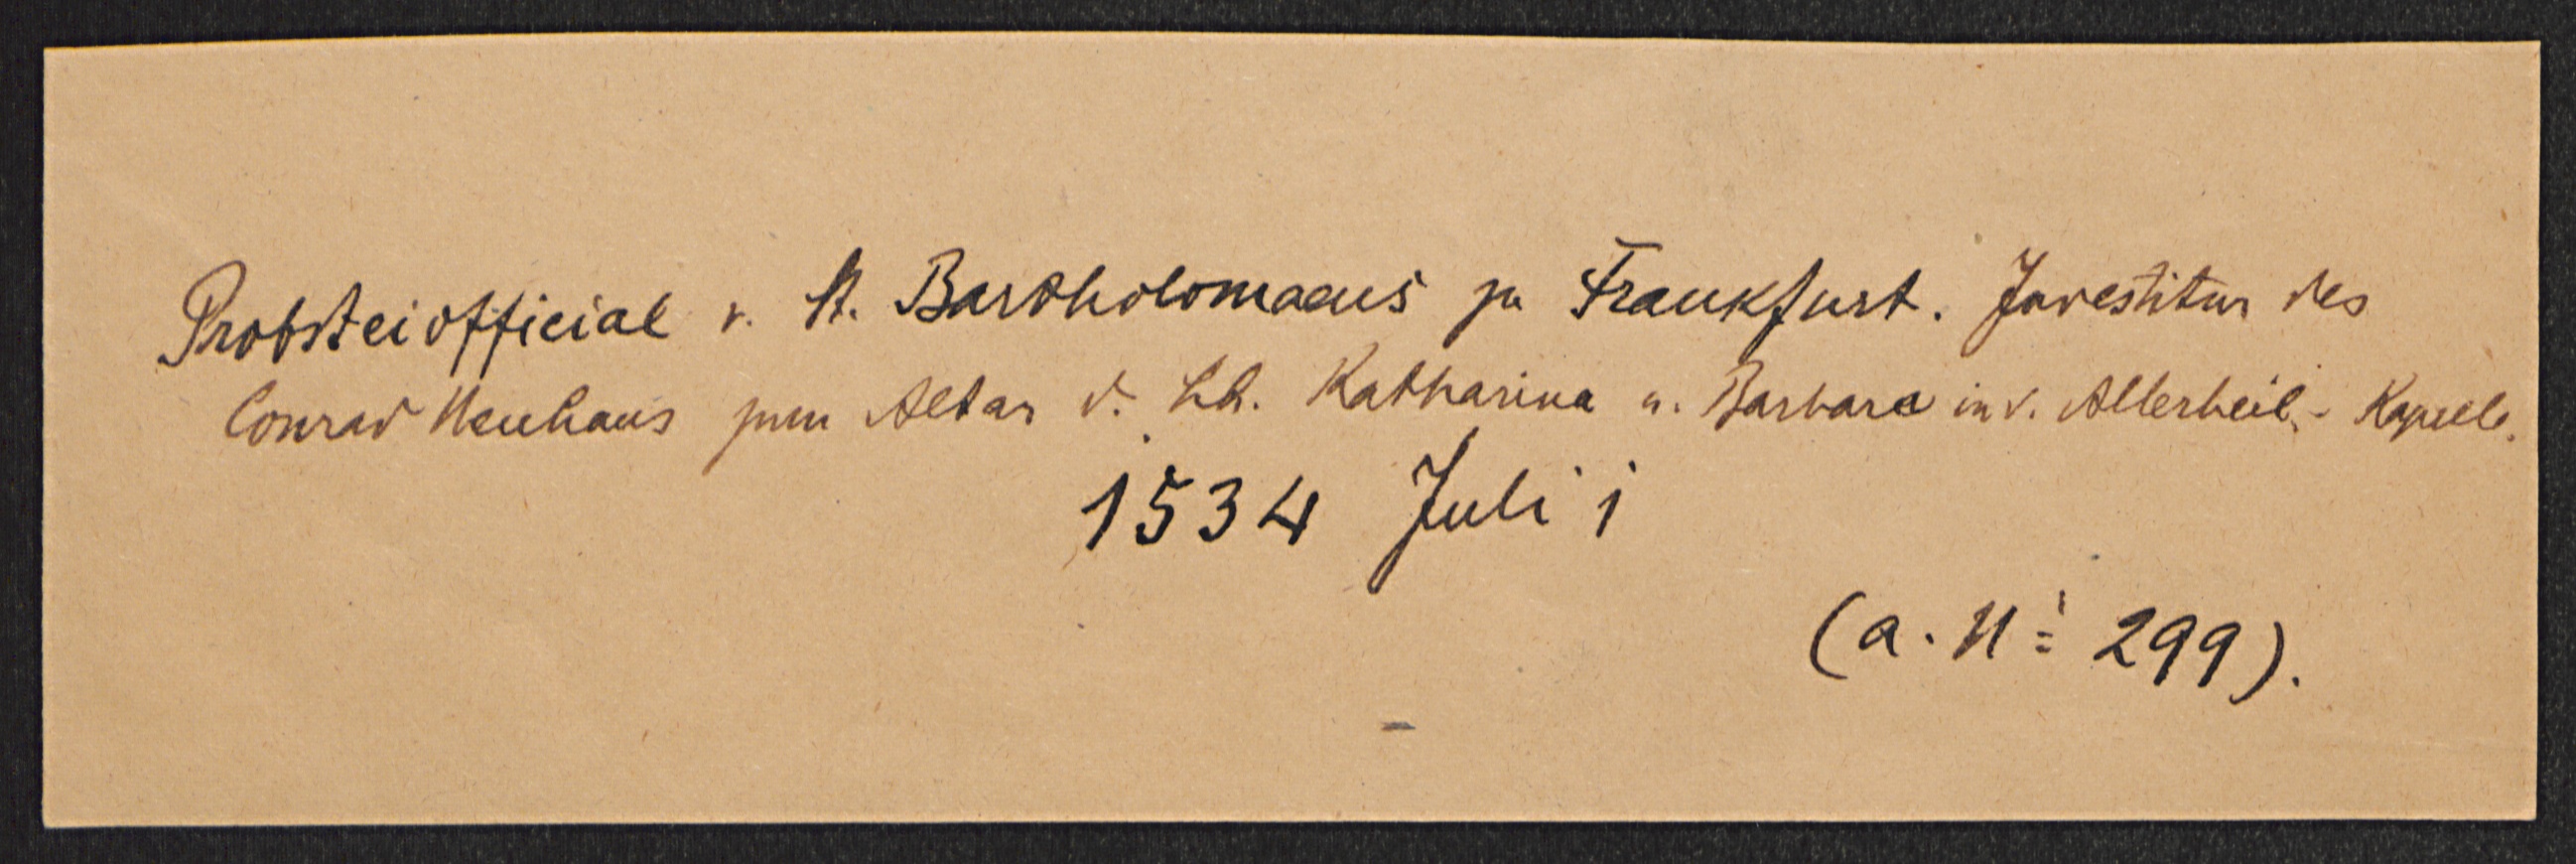 Probsteiofficial v. St. Bartholomaeus zu Frankfurt. Investitur des
Conrad Neuhaus zum Altar d. hh. Katharina u. Barbara in d. Allerheil.-Kapelle.
1534 Juli 1
(a. N: 299).